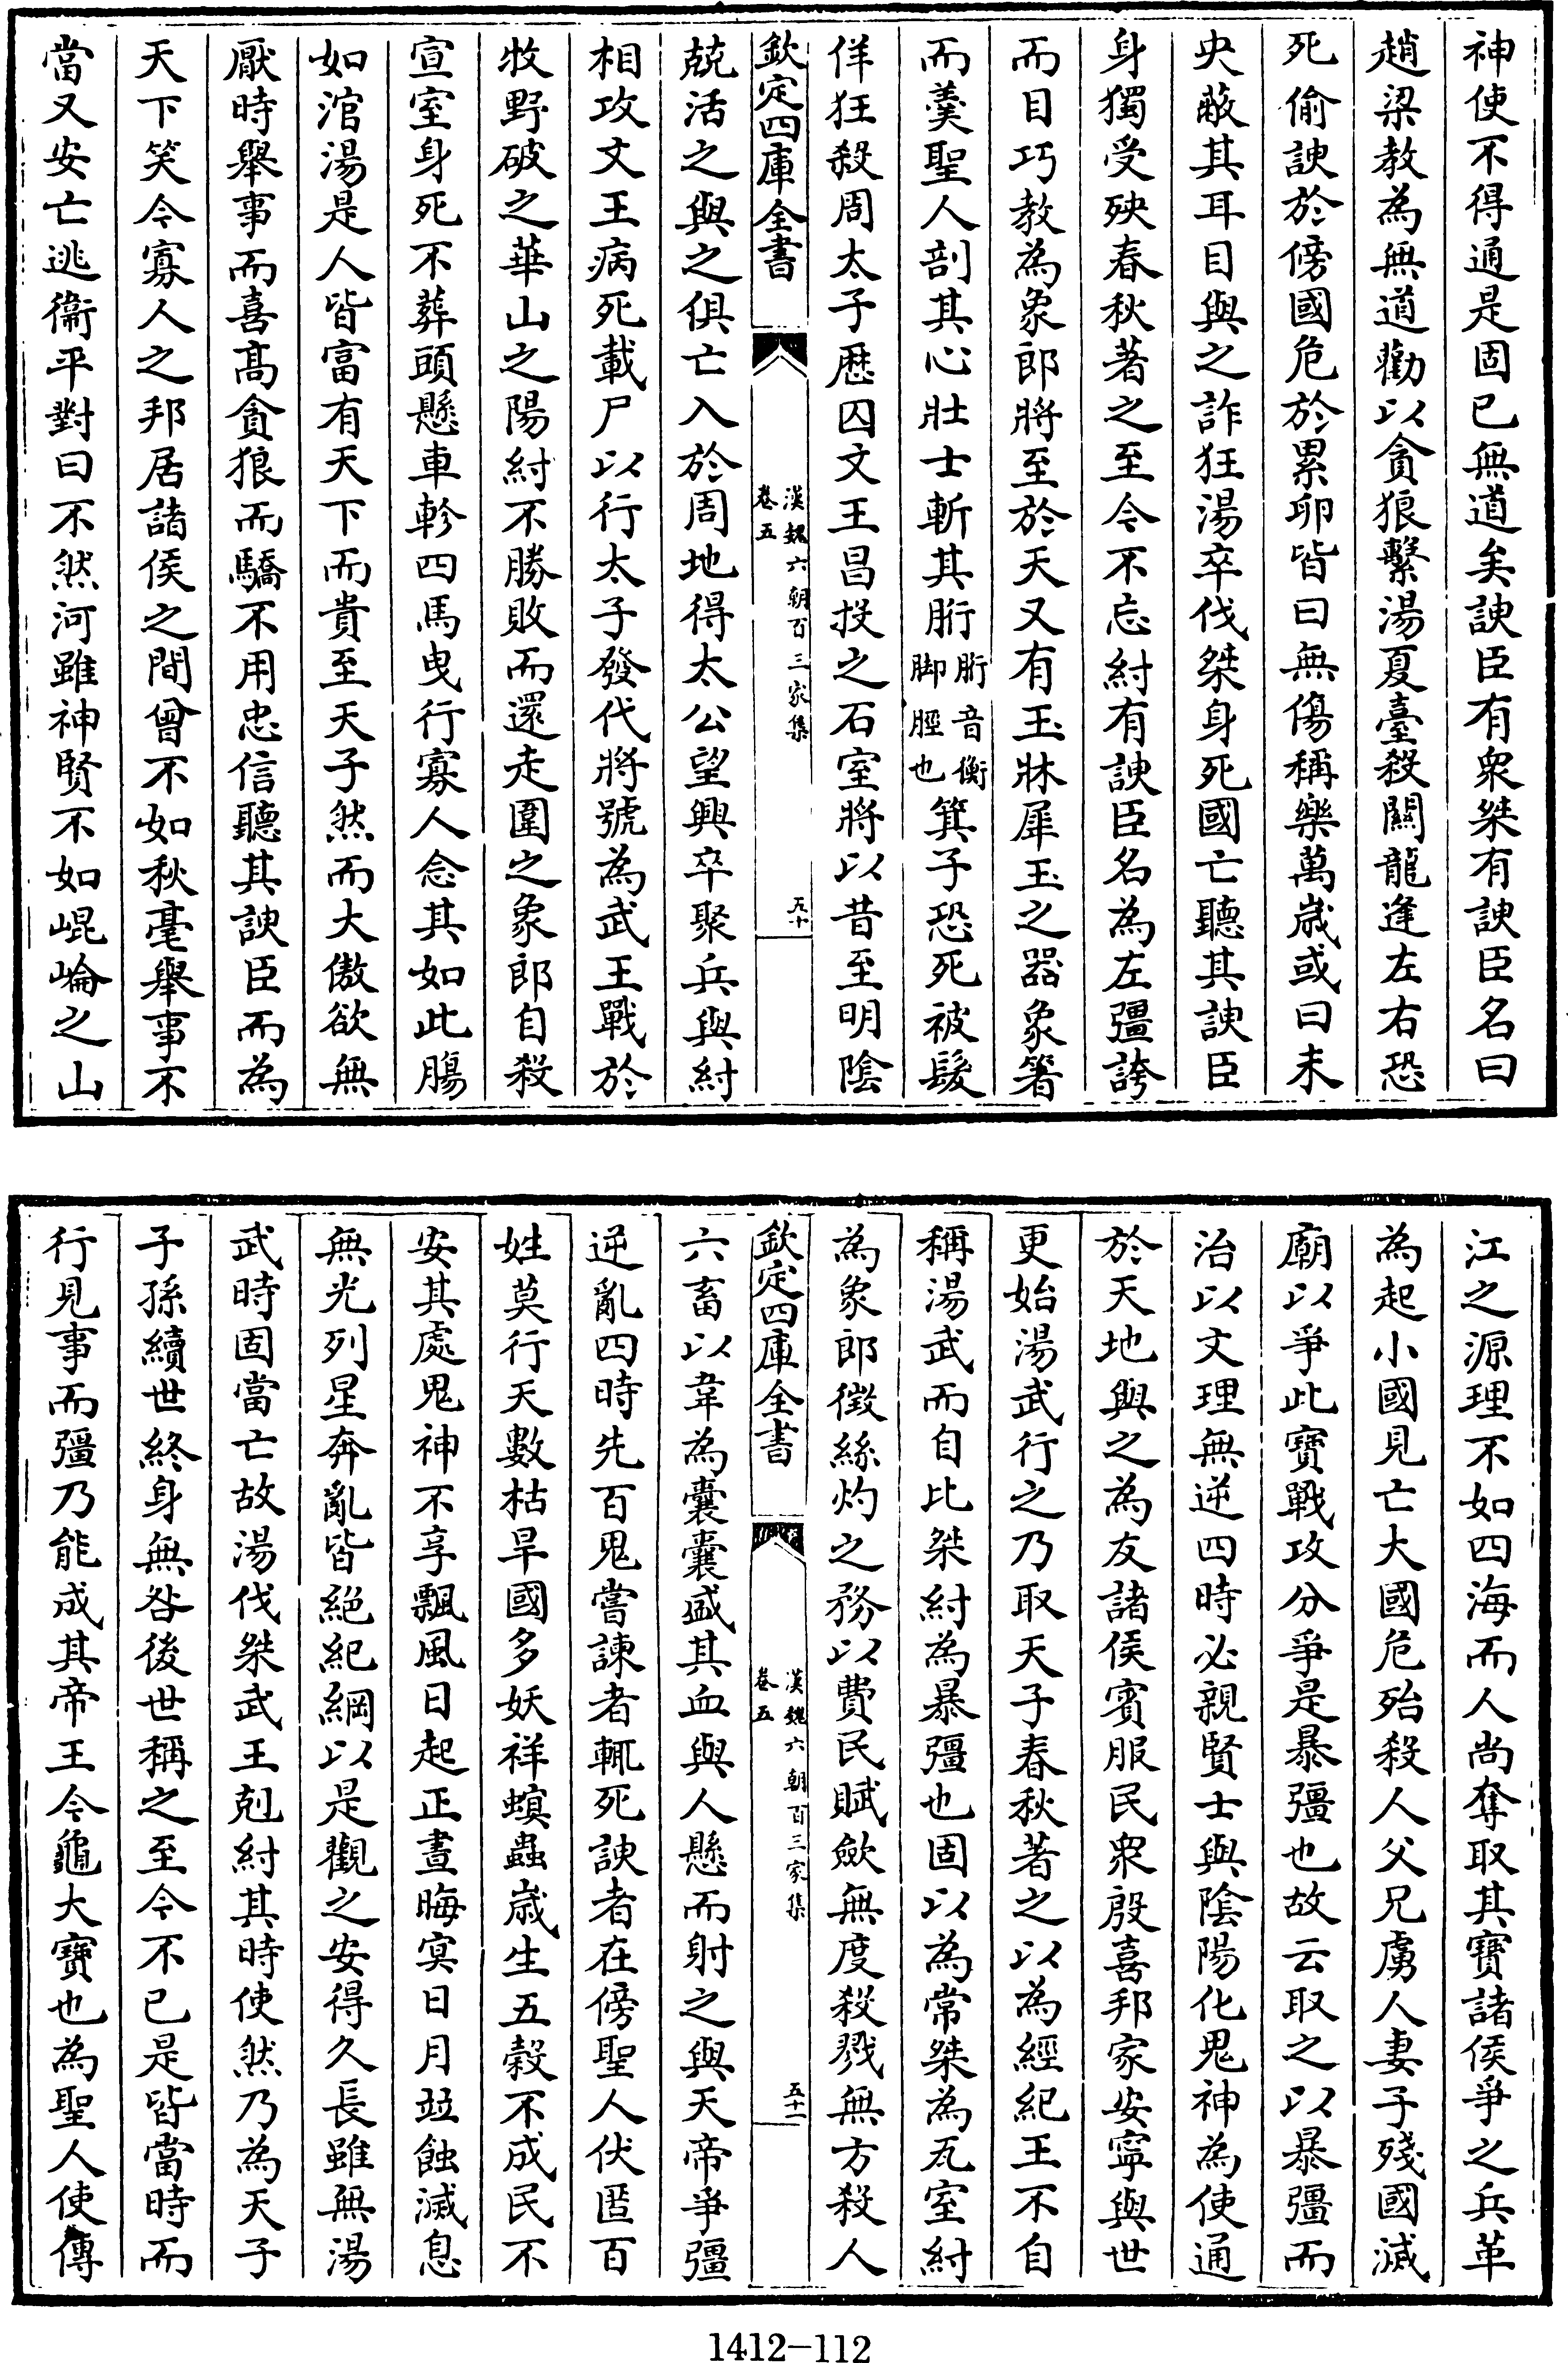 神使不得通是固已無道矣諛臣有衆桀有諛臣名曰
趙梁教為無道勸以貪狼繫湯夏臺殺關龍逢左右恐
死偷諛於傍國危於累卵皆曰無傷稱樂萬歲或曰未
央蔽其耳目與之詐狂湯卒伐桀身死國亡聽其諛臣
身獨受殃春秋著之至今不忘紂有諛臣名為左彊誇
而目巧教為象郎將至於天又有玉牀犀玉之器象箸
而羹聖人剖其心壯士斬其胻胻音衡脚脛也箕子恐死被髮
佯狂殺周太子歷囚文王昌投之石室將以昔至明陰
欽定四庫全書
漢魏六朝百三家集
卷五
五十
兢活之與之俱亡入於周地得太公望興卒聚兵與紂
相攻文王病死載尸以行太子發代將號為武王戰於
牧野破之華山之陽紂不勝敗而還走圍之象郎自殺
宣室身死不葬頭懸車軫四馬曳行寡人念其如此腸
如涫湯是人皆富有天下而貴至天子然而大傲欲無
厭時舉事而喜髙貪狼而驕不用忠信聽其諛臣而為
天下笑今寡人之邦居諸侯之間曾不如秋毫舉事不
當又安亡逃衞平對曰不然河雖神賢不如崐崘之山
江之源理不如四海而人尚奪取其寶諸侯爭之兵革
為起小國見亡大國危殆殺人父兄虜人妻子殘國滅
廟以爭此寶戰攻分爭是暴彊也故云取之以暴彊而
治以文理無逆四時必親賢士與陰陽化鬼神為使通
於天地與之為友諸侯賓服民衆殷喜邦家安寧與世
更始湯武行之乃取天子春秋著之以為經紀王不自
稱湯武而自比桀紂為暴彊也固以為常桀為瓦室紂
為象郎徵絲灼之務以費民賦斂無度殺戮無方殺人
欽定四庫全書
漢魏六朝百三家集
卷五
五十一
六畜以韋為囊囊盛其血與人懸而射之與天帝爭彊
逆亂四時先百鬼嘗諫者輒死諛者在傍聖人伏匿百
姓莫行天數枯旱國多妖祥螟蟲歲生五穀不成民不
安其處鬼神不享飄風日起正晝晦㝠日月竝蝕滅息
無光列星奔亂皆絕紀綱以是觀之安得久長雖無湯
武時固當亡故湯伐桀武王剋紂其時使然乃為天子
子孫續世終身無咎後世稱之至今不已是皆當時而
行見事而彊乃能成其帝王今龜大寶也為聖人使傳
1412-112